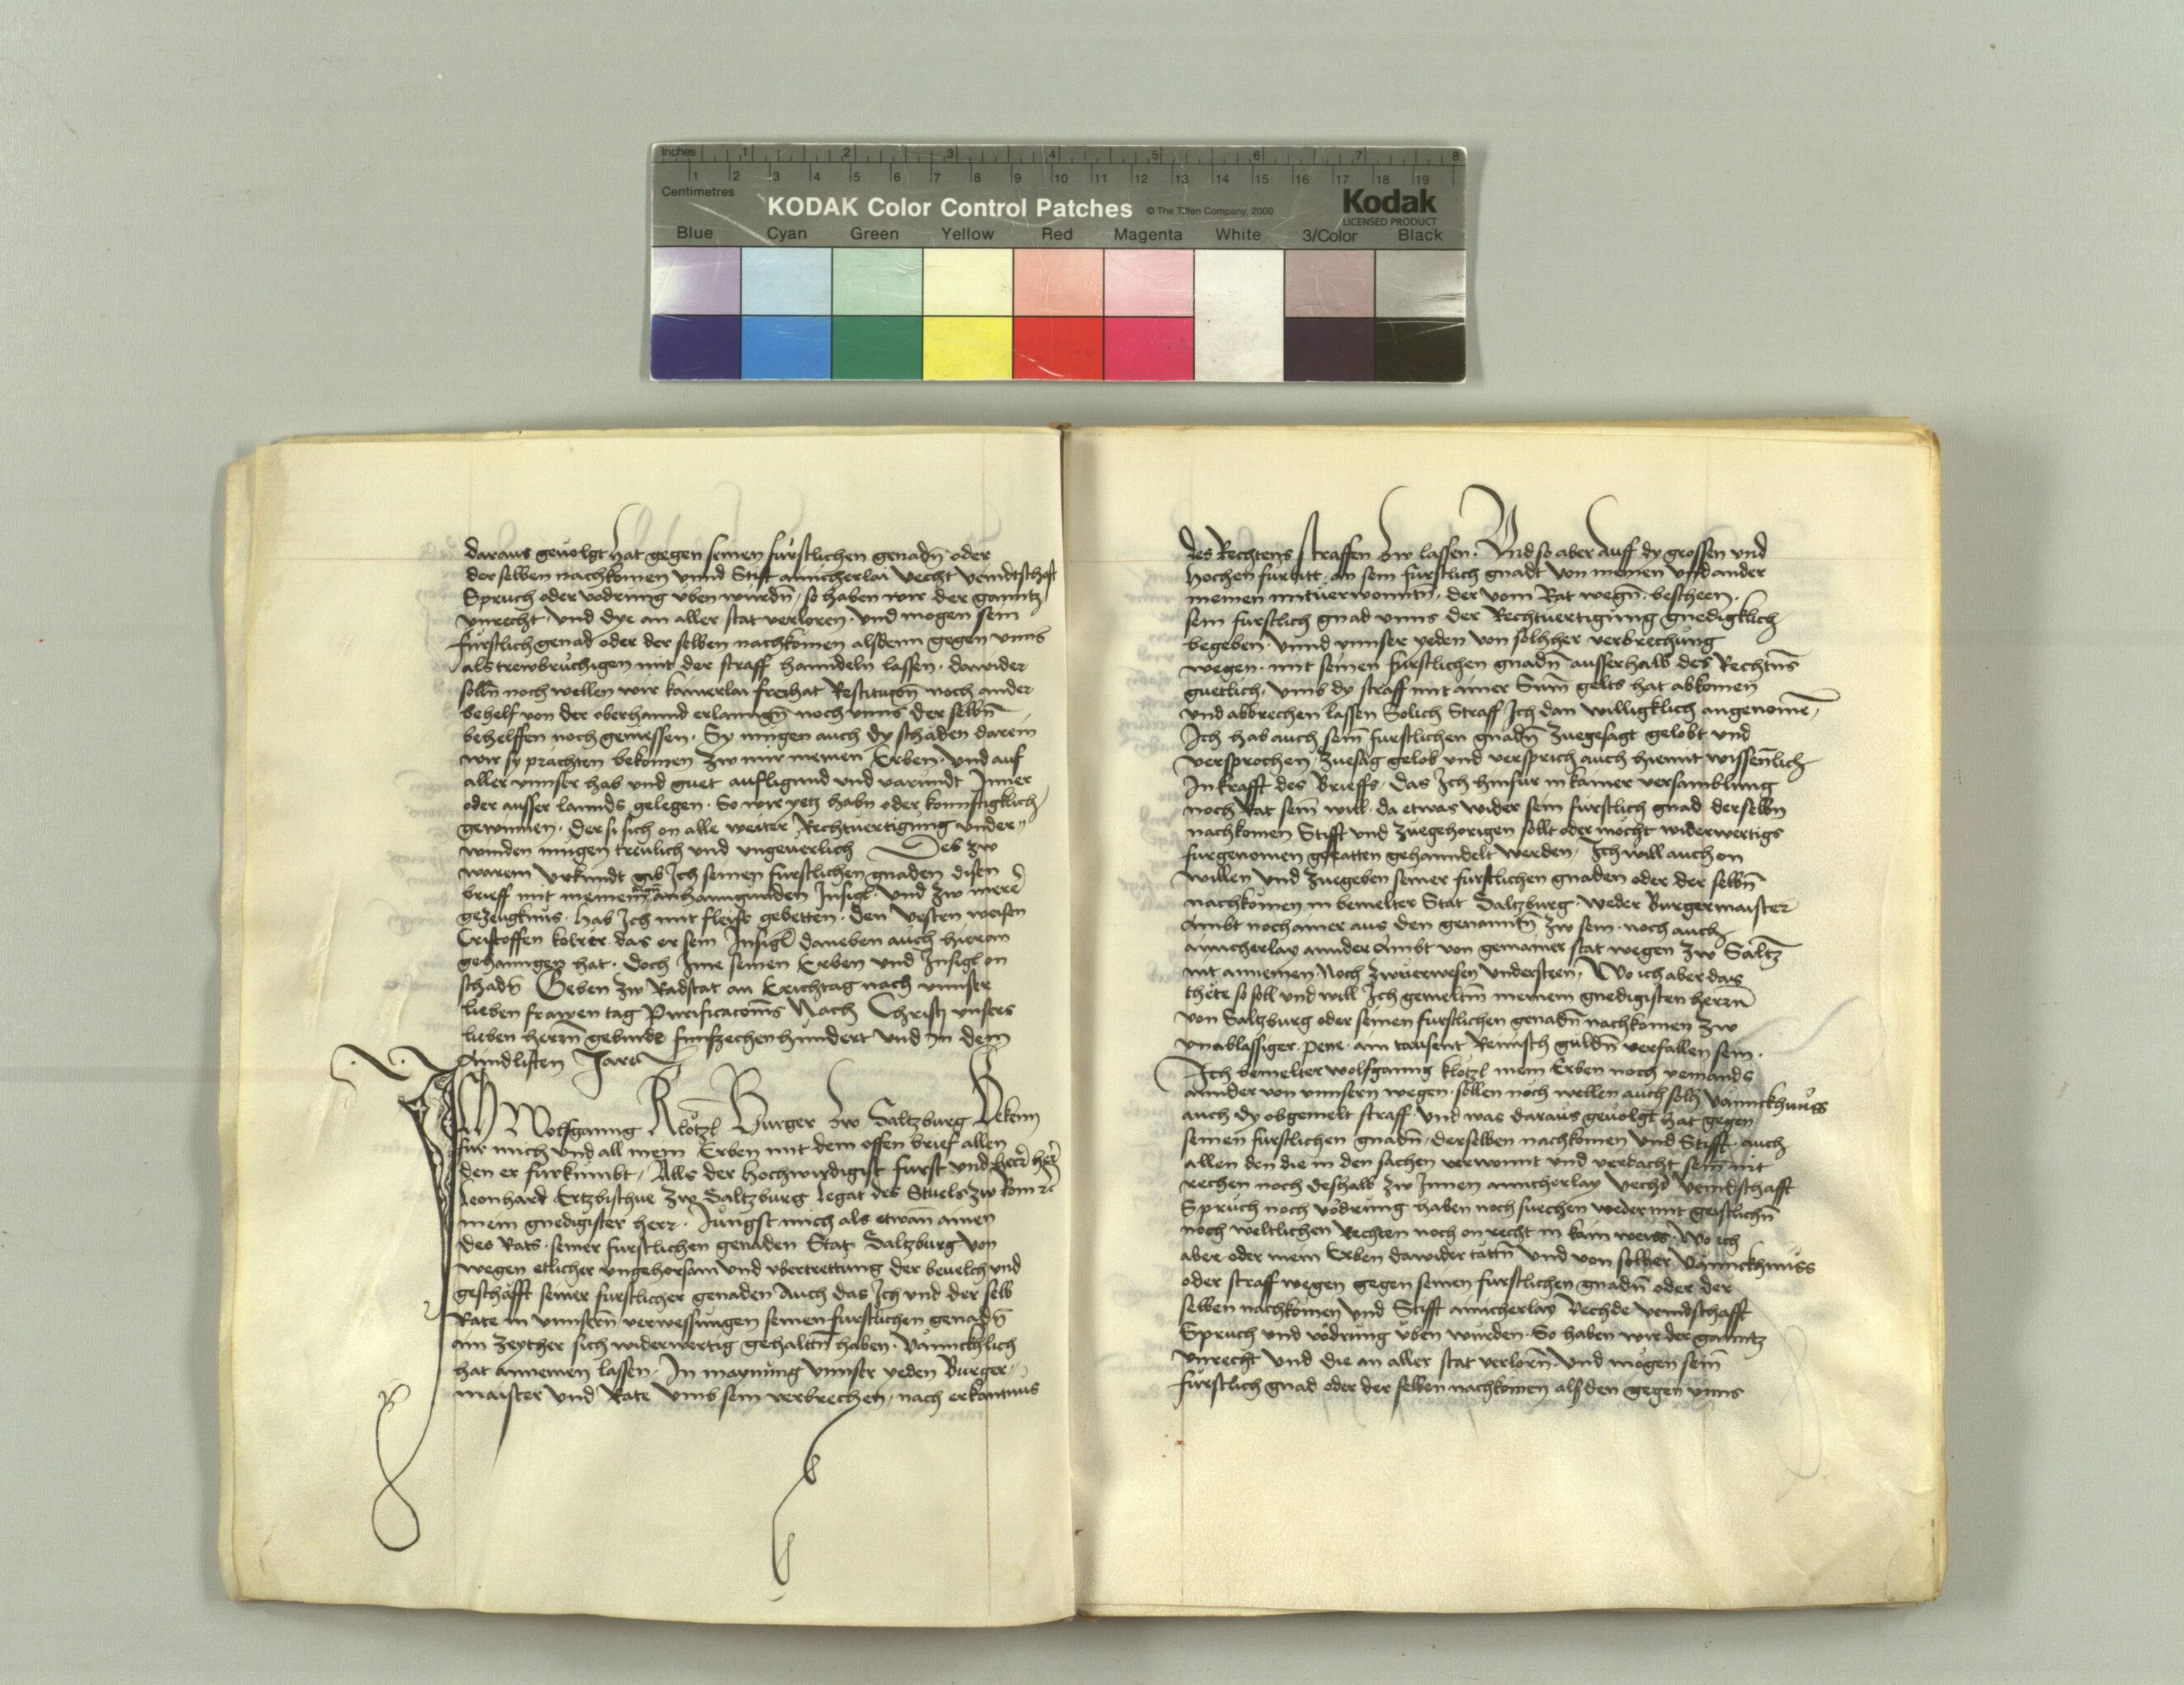 Inches 1 2 3 4 5 6 7 8
1 2 3 4 5 6 7 8 9 10 11 12 13 14 15 16 17 18 19
Centimetres
KODAK Color Control Patches © The Tiffen Company, 2000 Kodak
LICENSED PRODUCT
Blue Cyan Green Yellow Red Magenta White 3/Color Black
daraus geuolgt hat gegen seinen fürstlichen genadn̄ oder
derselben nachkomen vnnd Stift ainicherlai vecht veindtschaft
Spruch oder vodrung vben wurdn̄, so haben wir der ganntz
vnrecht, vnd dye an aller stat verloren. vnd mogen sein
fürstlich genad oder der selben nachkomen alsdenn gegen vnns
als trewbrüchigen mit der straff hanndeln lassen. dawider
solln̄ noch wellen wir kainerlai freihat Restitucon̄ noch ander
behelf von der oberhannd erlanngn̄ noch vnns der selbn̄
behelffen noch geniessen. Sy mügen auch dy schäden darein
wir sy prächten bekomen zw mir meinen Erben. vnd auf
aller vnnser hab vnd guet aufligund vnd varundt Inner
oder ausser lannds gelegen. So wir yetz habn̄ oder konnftigklich
gewinnen. der si sich on alle weiter Rechtuertigung vnder„
winden mügen treulich vnd vngeuerlich Deb zw
warem vrkundt gib Ich seinen fürstlichen gnaden disen
brieff mit meinem anhanngunden Insigl. vnd zw merē
gezeugknus. hab Ich mit fleiss gebetten. den vesten weisen
Cristoffen kolrer das er sein Insigl daneben auch hieran
gehanngen hat. doch Ime seinen Erben vnd Insigl on
schadn̄ Geben zw Radstat an Erichtag nach vnnser
lieben frawen tag Purificaconīs Nach Christj vnsers
lieben herrn̄ geburde funfzechenhundert vnd in dem
Aindlisten Jare
Ich Wolfganng Klötzl Burger zw Saltzburg Bekenn
für mich vnd all mein Erben mit dem offen brief allen
den er fürkumbt, Alls der Hochwirdigist fürst vnd herr̄ her̄
leonhard Ertzbischue zw Saltzburg legat des Stuels zw Rom zc̄
mein gnedigister herr. Jüngst mich als etwan̄ ainen
des Rats. seiner fürstlichen genaden Stat Saltzburg von
wegen etlicher vngehorsam vnd vbertrettung der beuelch vnd
geschäfft seiner fürstlicher genaden Auch das Ich vnd der selb
Rate in vnnsern̄ verwesungen seinen fürstlichen genadn̄
ain zeyther sich widerwertig gehaltn̄ haben. vännckchlich
hat annemen lassen. In maynung vnnser yeden Burger„
maister vnd Rate vmb sein verbrechen, nach erkantnus
des Rechtens straffen zw lassen. Vnd so aber auff dy grossen vnd
hochen fürbitt. an sein fürstlich gnadt von meinen vnd ander
meinen mituerwonntn̄, der vom Rat wegn̄. bescheen.
sein fürstlich gnad vnns der Rechtuertigung gnedigklich
begeben. vnnd vnnser yeden von solhcher verbrechung
wegen. mit seinen fürstlichen gnadn̄ ausserhalb des Rechtn̄s
guetlich, vmb dy straff mit ainer Sum̄ gelts hat abkomen
vnd abbrechen lassen Solich Straff Ich dan willigklich angenomē,
Ich hab auch sein̄ fürstlichen gnadn̄ zuegesagt gelobt vnd
versprochen, zuesag gelob vnd versprich auch hiemit wissenlich
In krafft des Brieffs, das Ich hinfür in kainer versamblung
noch Rat sein̄ will. da etwas wider sein fürstlich gnad derselbn̄
nachkomen Stifft vnd zuegehorigen sollt oder mocht widerwertigs
furgenomen geratten gehanndelt werden, Ich will auch on
willen vnd zuegeben seiner fürstlichen gnaden oder der selbn̄
nachkomen in bemelter Stat Saltzburg weder Burgermaister
Ambt noch ainer aus den genanntn̄ zw sein. noch auch
ainicherlay annder Ambt von gemainer stat wegen zw Saltz
nit annemen Noch zwuerwesen vndersteen, Wo ich aber das
thete so soll vnd will Ich gemeltm̄ meinem gnedigisten herrn̄
von Saltzburg oder seinen fürstlichen genadn̄ nachkomen zw
vnablassiger pene. ain tausent Reinisch guldn̄ verfallen sein.
Ich bemelter wolfganng klötzl mein Erben noch yemands
annder von vnnsern wegen. sollen noch wellen auch solh vännckhnuss
auch dy obgemelt straff. vnd was daraus geuolgt hat gegen
seinen fürstlichen gnadn̄, derselben nachkomen vnd Stifft. auch
allen den die in den sachen verwonnt vnd verdacht sein̄ nit
rechen noch deshalb zw Innen ainicherlay vechd veindschafft
Spruch noch vödrung haben noch suechen weder mit geistlichn̄
noch weltlichen Rechten noch on recht in kain weiss. Wo ich
aber oder mein Erben dawider tättn̄ vnd von solher vännckhnuss
oder straff wegen gegen seinen fürstlichen gnadn̄ oder der
selben nachkomen vnd Stifft ainicherlay vechde veindschafft
Spruch vnd vodrung vben wurden. So haben wir der ganntz
vnrecht vnd die an aller stat verlorn̄. vnd mögen sein̄
fürstlich gnad oder der selben nachkomen alsden gegen vnns